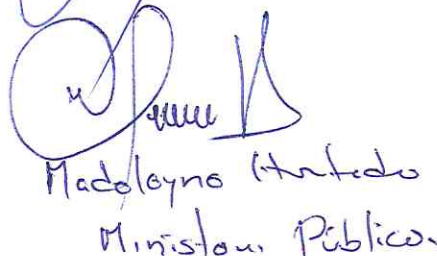 Madeleyne Hurtado
Ministerio Público.